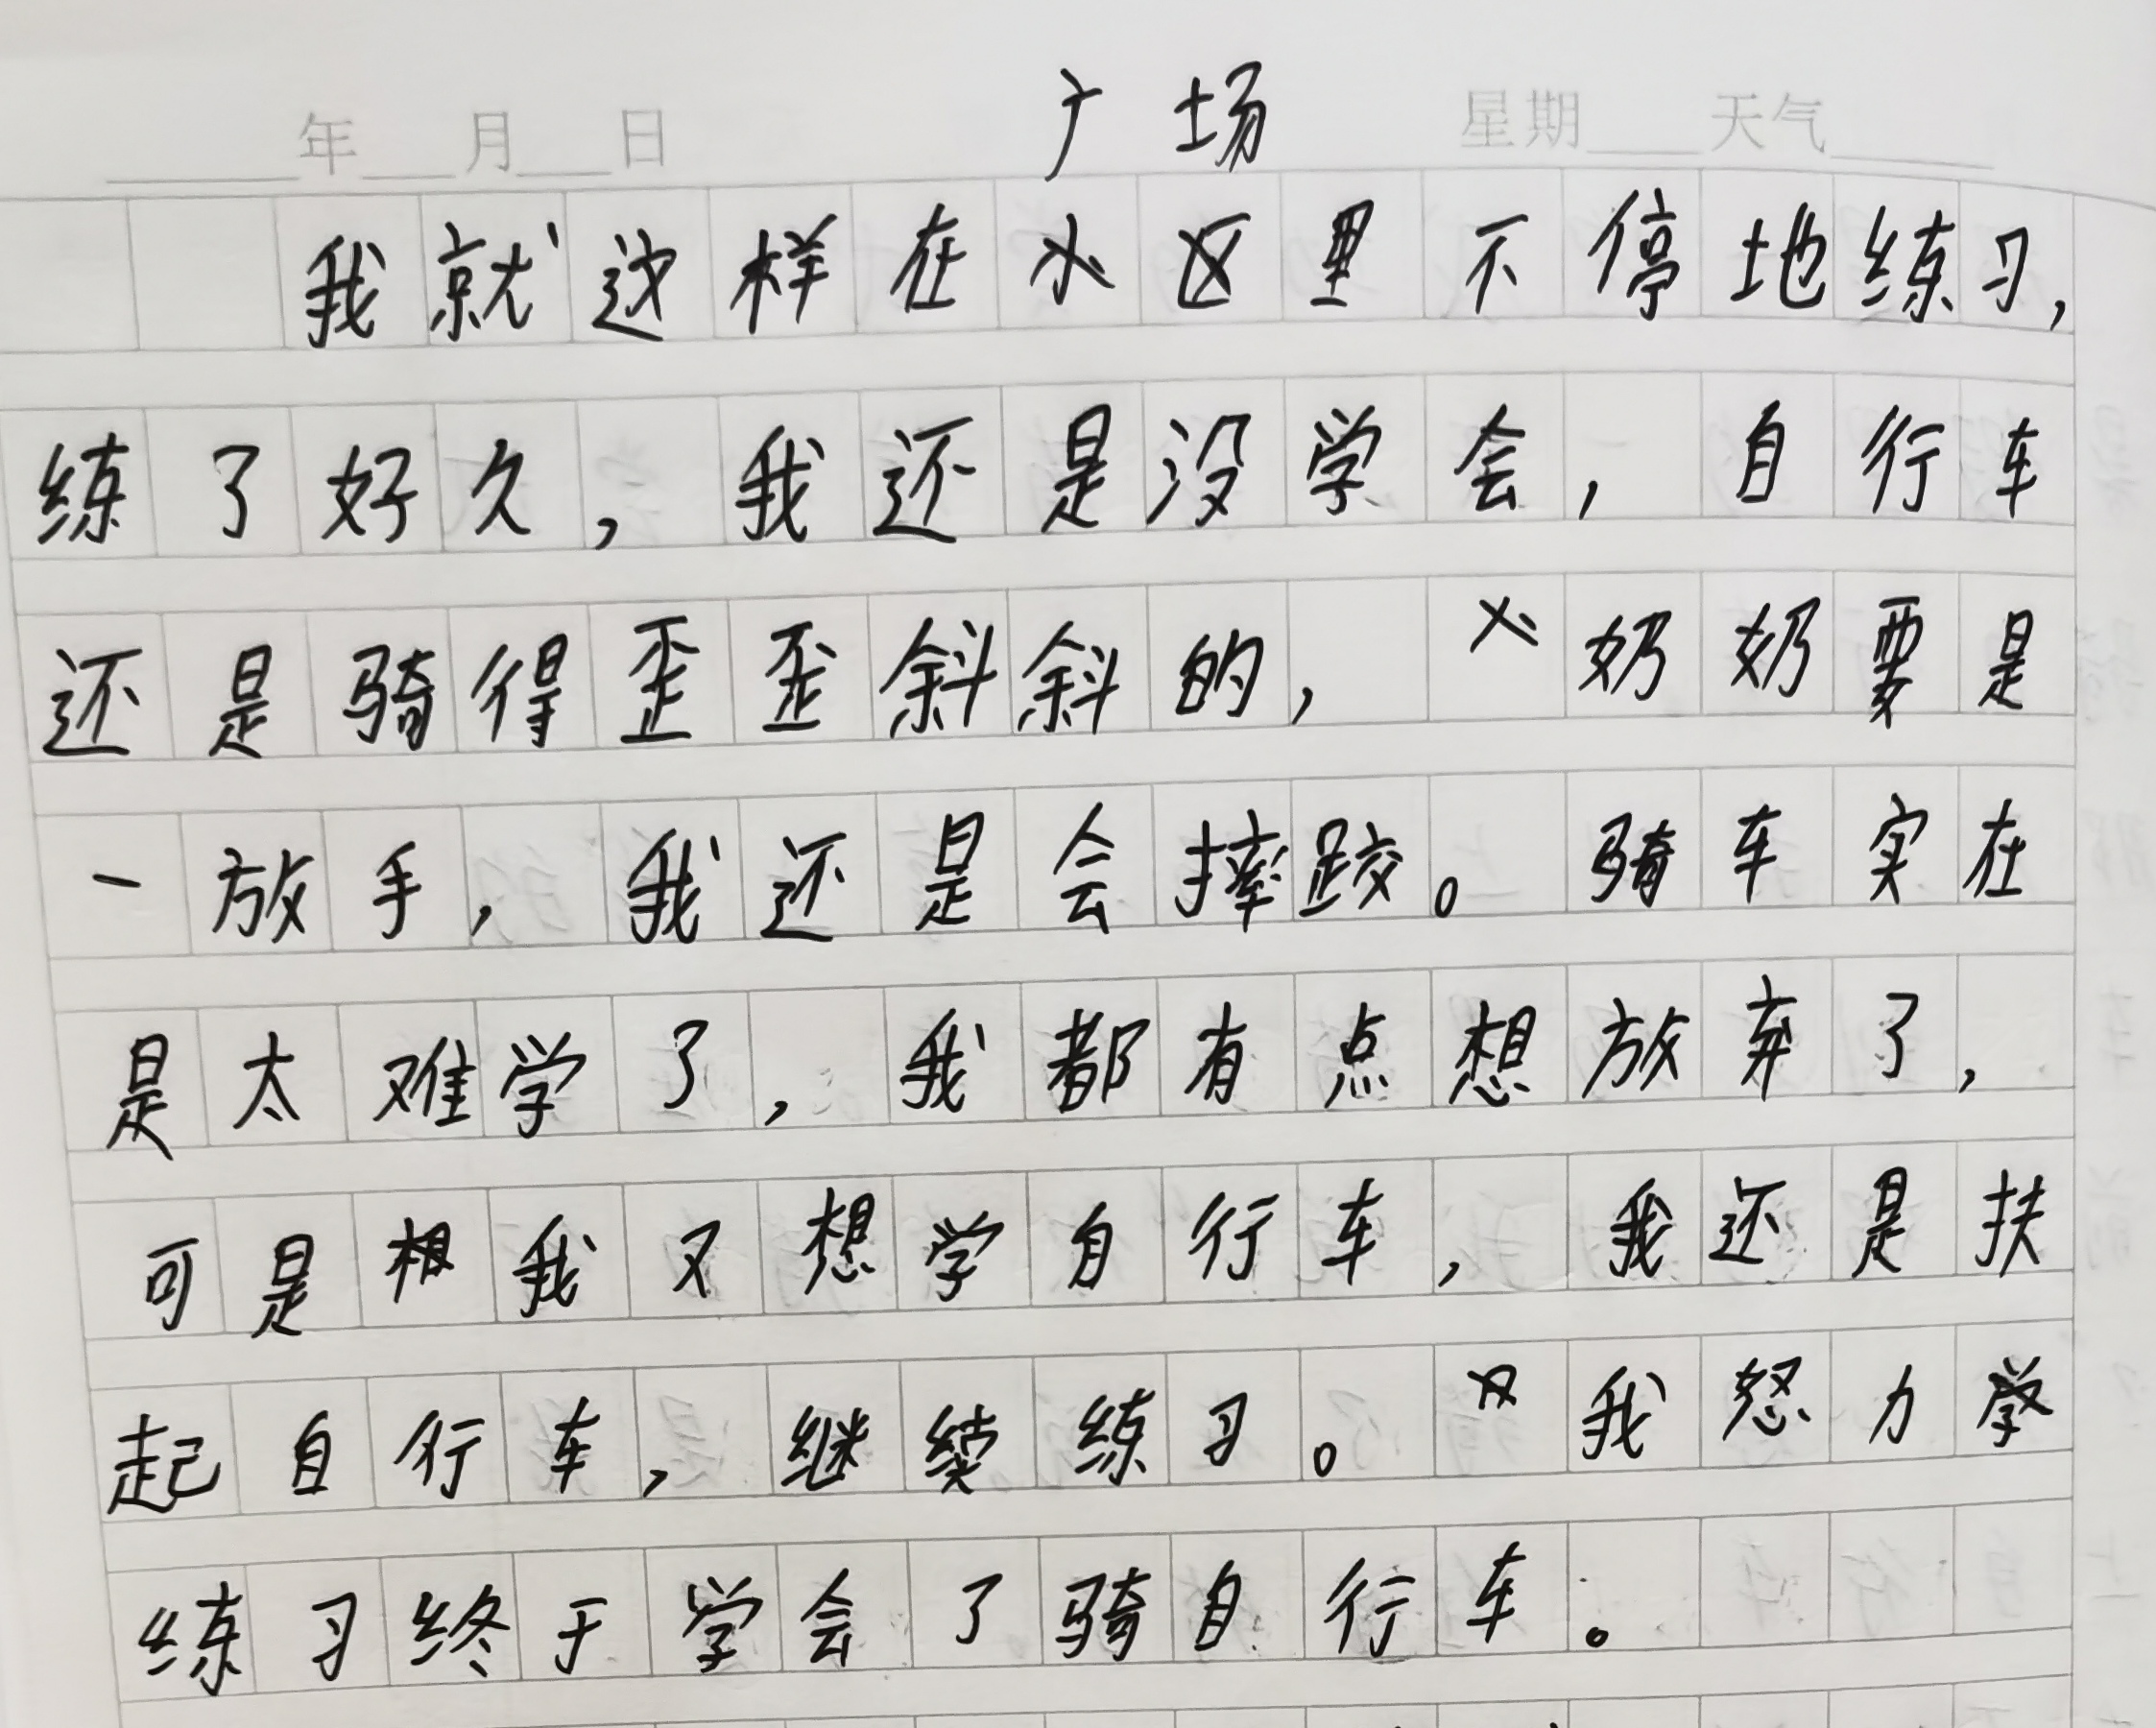 年 月 日 广场 星期 天气
我就这样在小区里不停地练习，
练了好久，我还是没学会，自行车
还是骑得歪歪斜斜的，奶奶要是
一放手，我还是会摔跤。骑车实在
是太难学了，我都有点想放弃了，
可是相我又想学自行车，我还是扶
起自行车，继续练习。我怒力学
练习终于学会了骑自行车。